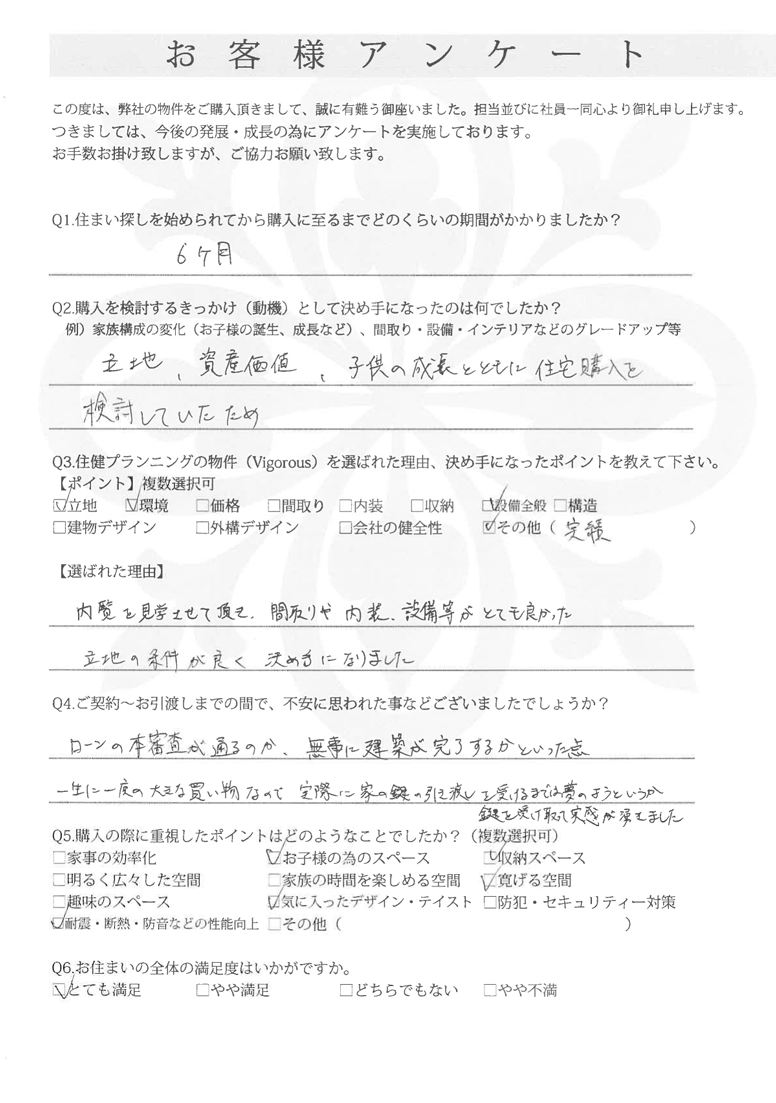 お客様アンケート
この度は、弊社の物件をご購入頂きまして、誠に有難う御座いました。担当並びに社員一同心より御礼申し上げます。
つきましては、今後の発展・成長の為にアンケートを実施しております。
お手数お掛け致しますが、ご協力お願い致します。
Q1.住まい探しを始められてから購入に至るまでどのくらいの期間がかかりましたか？
6ケ月
Q2.購入を検討するきっかけ（動機）として決め手になったのは何でしたか？
例）家族構成の変化（お子様の誕生、成長など）、間取り・設備・インテリアなどのグレードアップ等
立地、資産価値、子供の成長とともに住宅購入を
検討していたため
Q3.住健プランニングの物件（Vigorous）を選ばれた理由、決め手になったポイントを教えて下さい。
【ポイント】複数選択可
☑立地 ☑環境 □価格 □間取り □内装 □収納 ☑設備全般 □構造
□建物デザイン □外構デザイン □会社の健全性 ☑その他（実績）
【選ばれた理由】
内覧を見学させて頂き、間取りや内装、設備等がとても良かった
立地の条件が良く決め手になりました
Q4.ご契約～お引渡しまでの間で、不安に思われた事などございましたでしょうか？
ローンの本審査が通るのか、無事に建築が完了するかといった点
一生に一度の大きな買い物なので実際に家の鍵の引き渡しを受けるまでは夢のようというか
鍵を受け取って実感が湧きました
Q5.購入の際に重視したポイントはどのようなことでしたか？（複数選択可）
□家事の効率化 ☑お子様の為のスペース ☑収納スペース
□明るく広々した空間 □家族の時間を楽しめる空間 ☑寛げる空間
□趣味のスペース ☑気に入ったデザイン・テイスト □防犯・セキュリティー対策
☑耐震・断熱・防音などの性能向上 □その他（ ）
Q6.お住まいの全体の満足度はいかがですか。
☑とても満足 □やや満足 □どちらでもない □やや不満